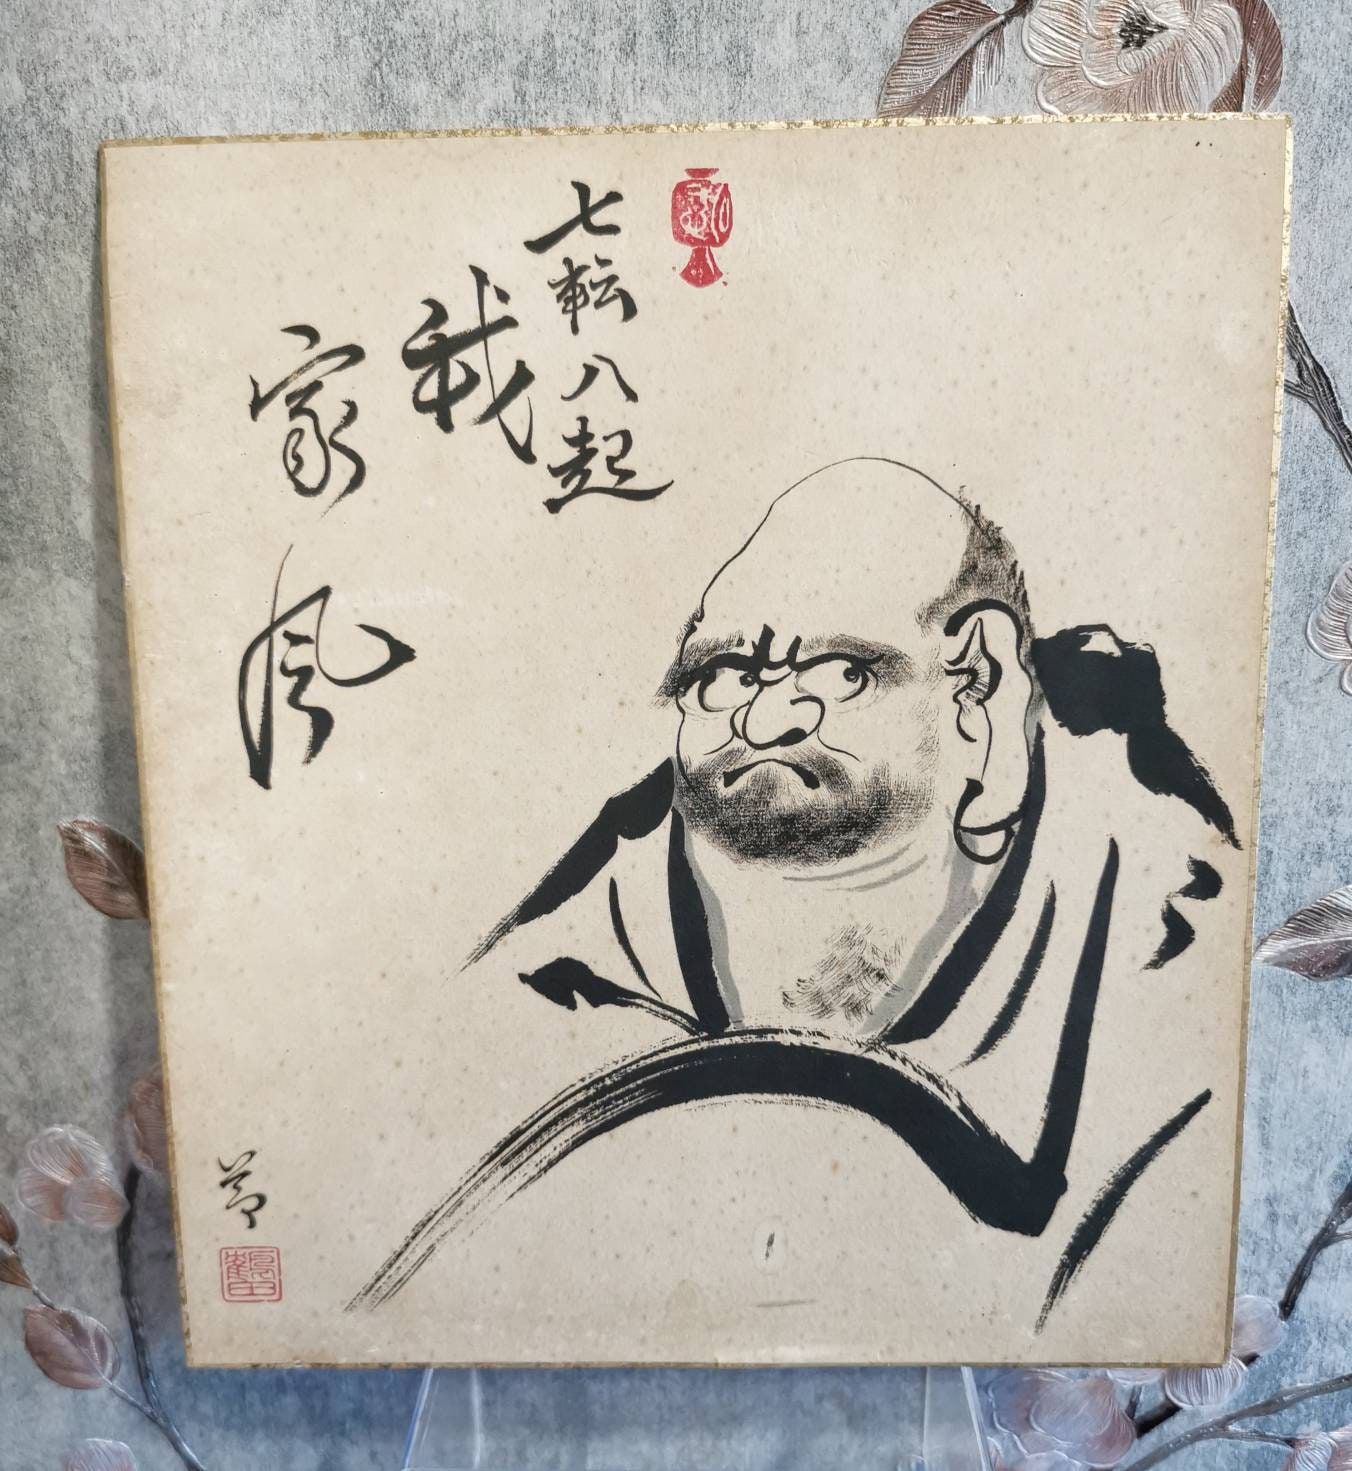 七転八起
我
家風